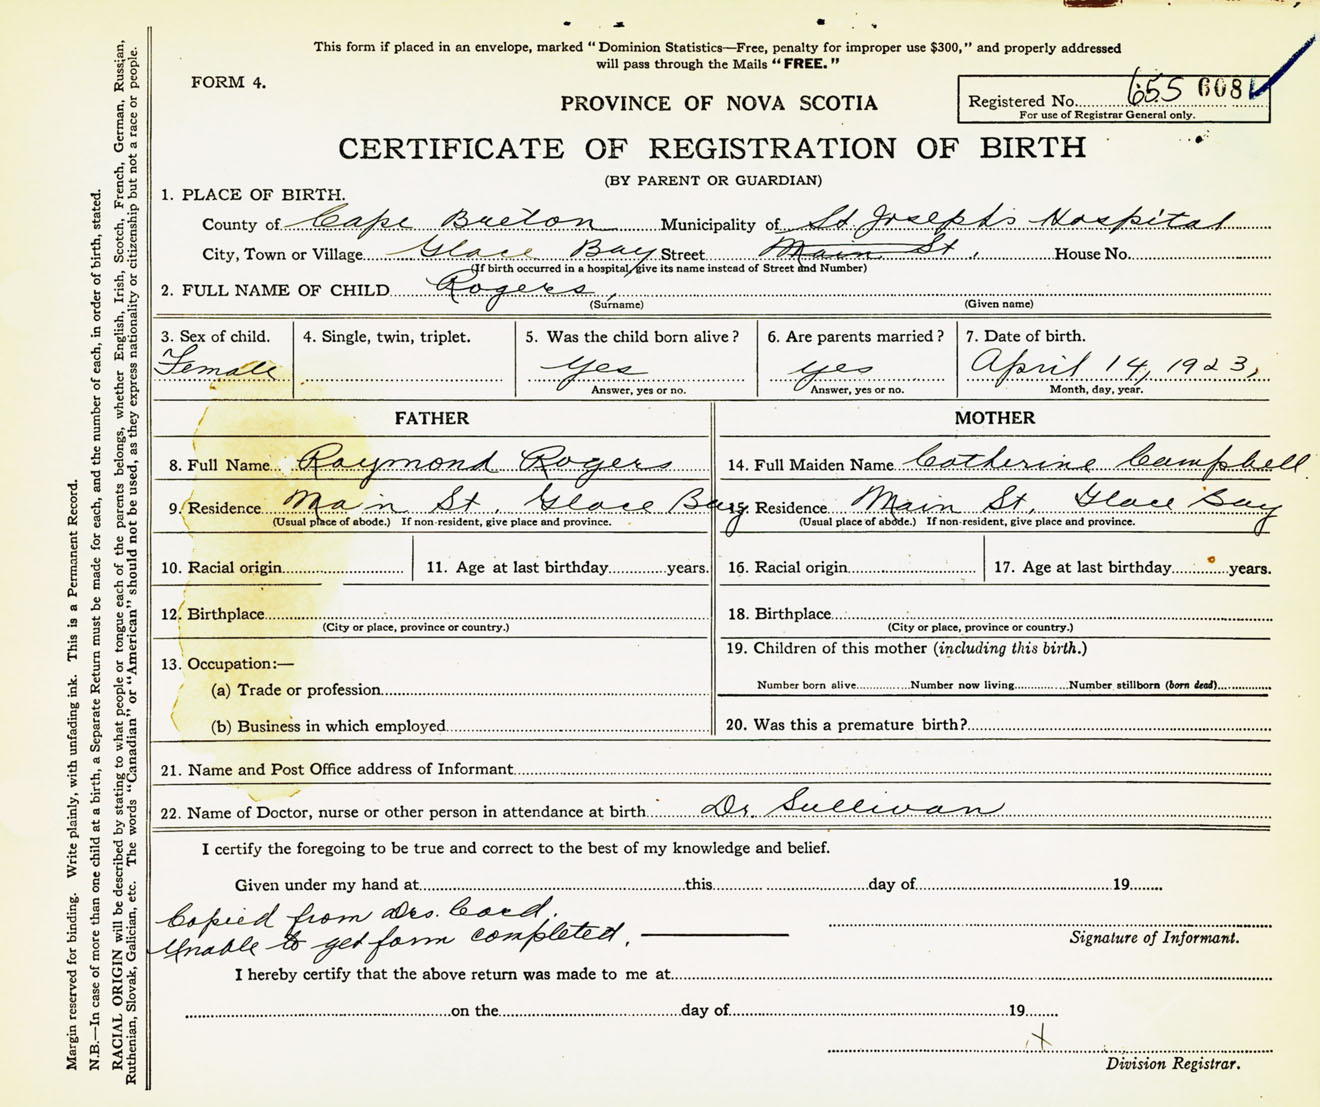 This form if placed in an envelope, marked "Dominion Statistics—Free, penalty for improper use $300," and properly addressed
will pass through the Mails "FREE."
FORM 4.
Registered No. 655 608
For use of Registrar General only.
PROVINCE OF NOVA SCOTIA
CERTIFICATE OF REGISTRATION OF BIRTH
(BY PARENT OR GUARDIAN)
1. PLACE OF BIRTH.
County of Cape Breton Municipality of St. Joseph's Hospital
City, Town or Village Glace Bay Street Main St. House No.
(If birth occurred in a hospital, give its name instead of Street and Number)
2. FULL NAME OF CHILD Rogers,
(Surname) (Given name)
3. Sex of child. 4. Single, twin, triplet. 5. Was the child born alive? 6. Are parents married? 7. Date of birth.
Female yes yes April 14, 1923,
Answer, yes or no. Answer, yes or no. Month, day, year.
FATHER MOTHER
8. Full Name Raymond Rogers 14. Full Maiden Name Catherine Campbell
9. Residence Main St. Glace Bay 15. Residence Main St. Glace Bay
(Usual place of abode.) If non-resident, give place and province. (Usual place of abode.) If non-resident, give place and province.
10. Racial origin 11. Age at last birthday years. 16. Racial origin 17. Age at last birthday years.
12. Birthplace 18. Birthplace
(City or place, province or country.) (City or place, province or country.)
13. Occupation:— 19. Children of this mother (including this birth.)
(a) Trade or profession Number born alive Number now living Number stillborn (born dead)
(b) Business in which employed 20. Was this a premature birth?
21. Name and Post Office address of Informant
22. Name of Doctor, nurse or other person in attendance at birth Dr. Sullivan
I certify the foregoing to be true and correct to the best of my knowledge and belief.
Given under my hand at this day of 19
Copied from Drs. Card.
Unable to get form completed.
Signature of Informant.
I hereby certify that the above return was made to me at
on the day of 19
Division Registrar.
Margin reserved for binding. Write plainly, with unfading ink. This is a Permanent Record.
N.B.—In case of more than one child at a birth, a Separate Return must be made for each, and the number of each, in order of birth, stated.
RACIAL ORIGIN will be described by stating to what people or tongue each of the parents belongs, whether English, Irish, Scotch, French, German, Russian,
Ruthenian, Slovak, Galician, etc. The words "Canadian" or "American" should not be used, as they express nationality or citizenship but not a race or people.